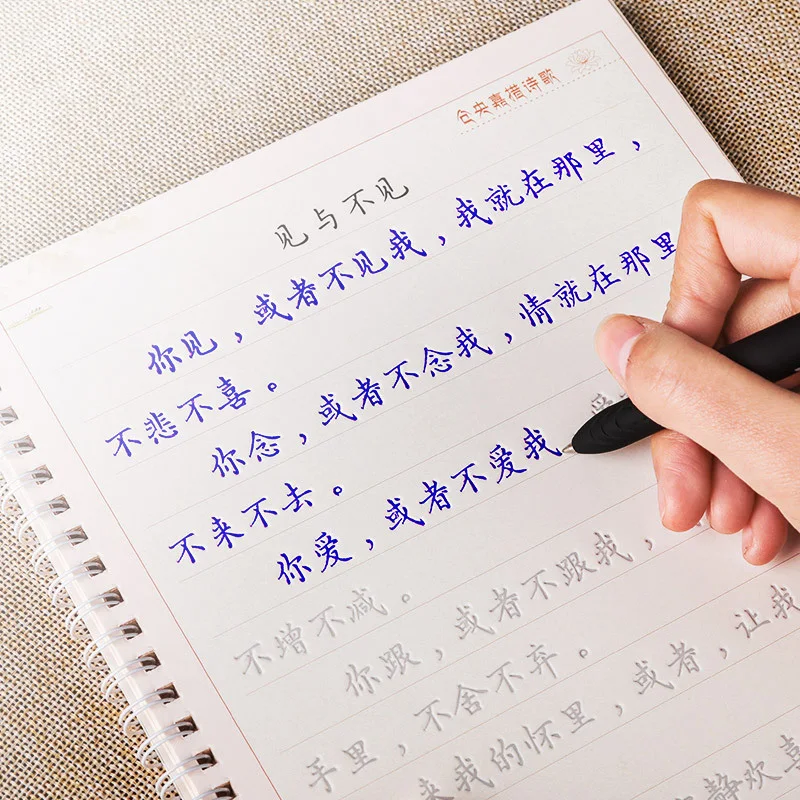 仓央嘉措诗歌
见与不见
你见，或者不见我，我就在那里，
不悲不喜。
你念，或者不念我，情就在那里
不来不去。
你爱，或者不爱我，爱
不增不减。
你跟，或者不跟我，
不舍不弃。
让我
手里，或者，
来我的怀里，
静欢喜